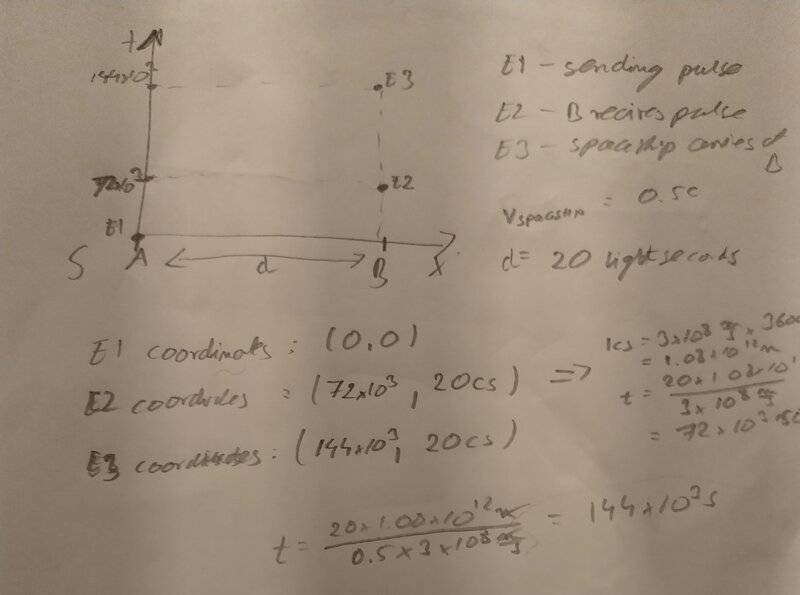 t
144x10³
E3
72x10³
E2
E1
S A d B X
E1 - sending pulse
E2 - B recires pulse
E3 - spaceship arrives at B
Vspaceship = 0.5c
d = 20 lightseconds
E1 coordinates : (0,0)
E2 coordinates : (72x10³, 20cs) =>
E3 coordinates : (144x10³, 20cs)
1cs = 3x10⁸ x 3600
= 1.08x10¹²m
t = 20x1.08x10¹ / 3x10⁸
= 72x10³
t = 20x1.08x10¹²m / 0.5x3x10⁸ m/s = 144x10³s